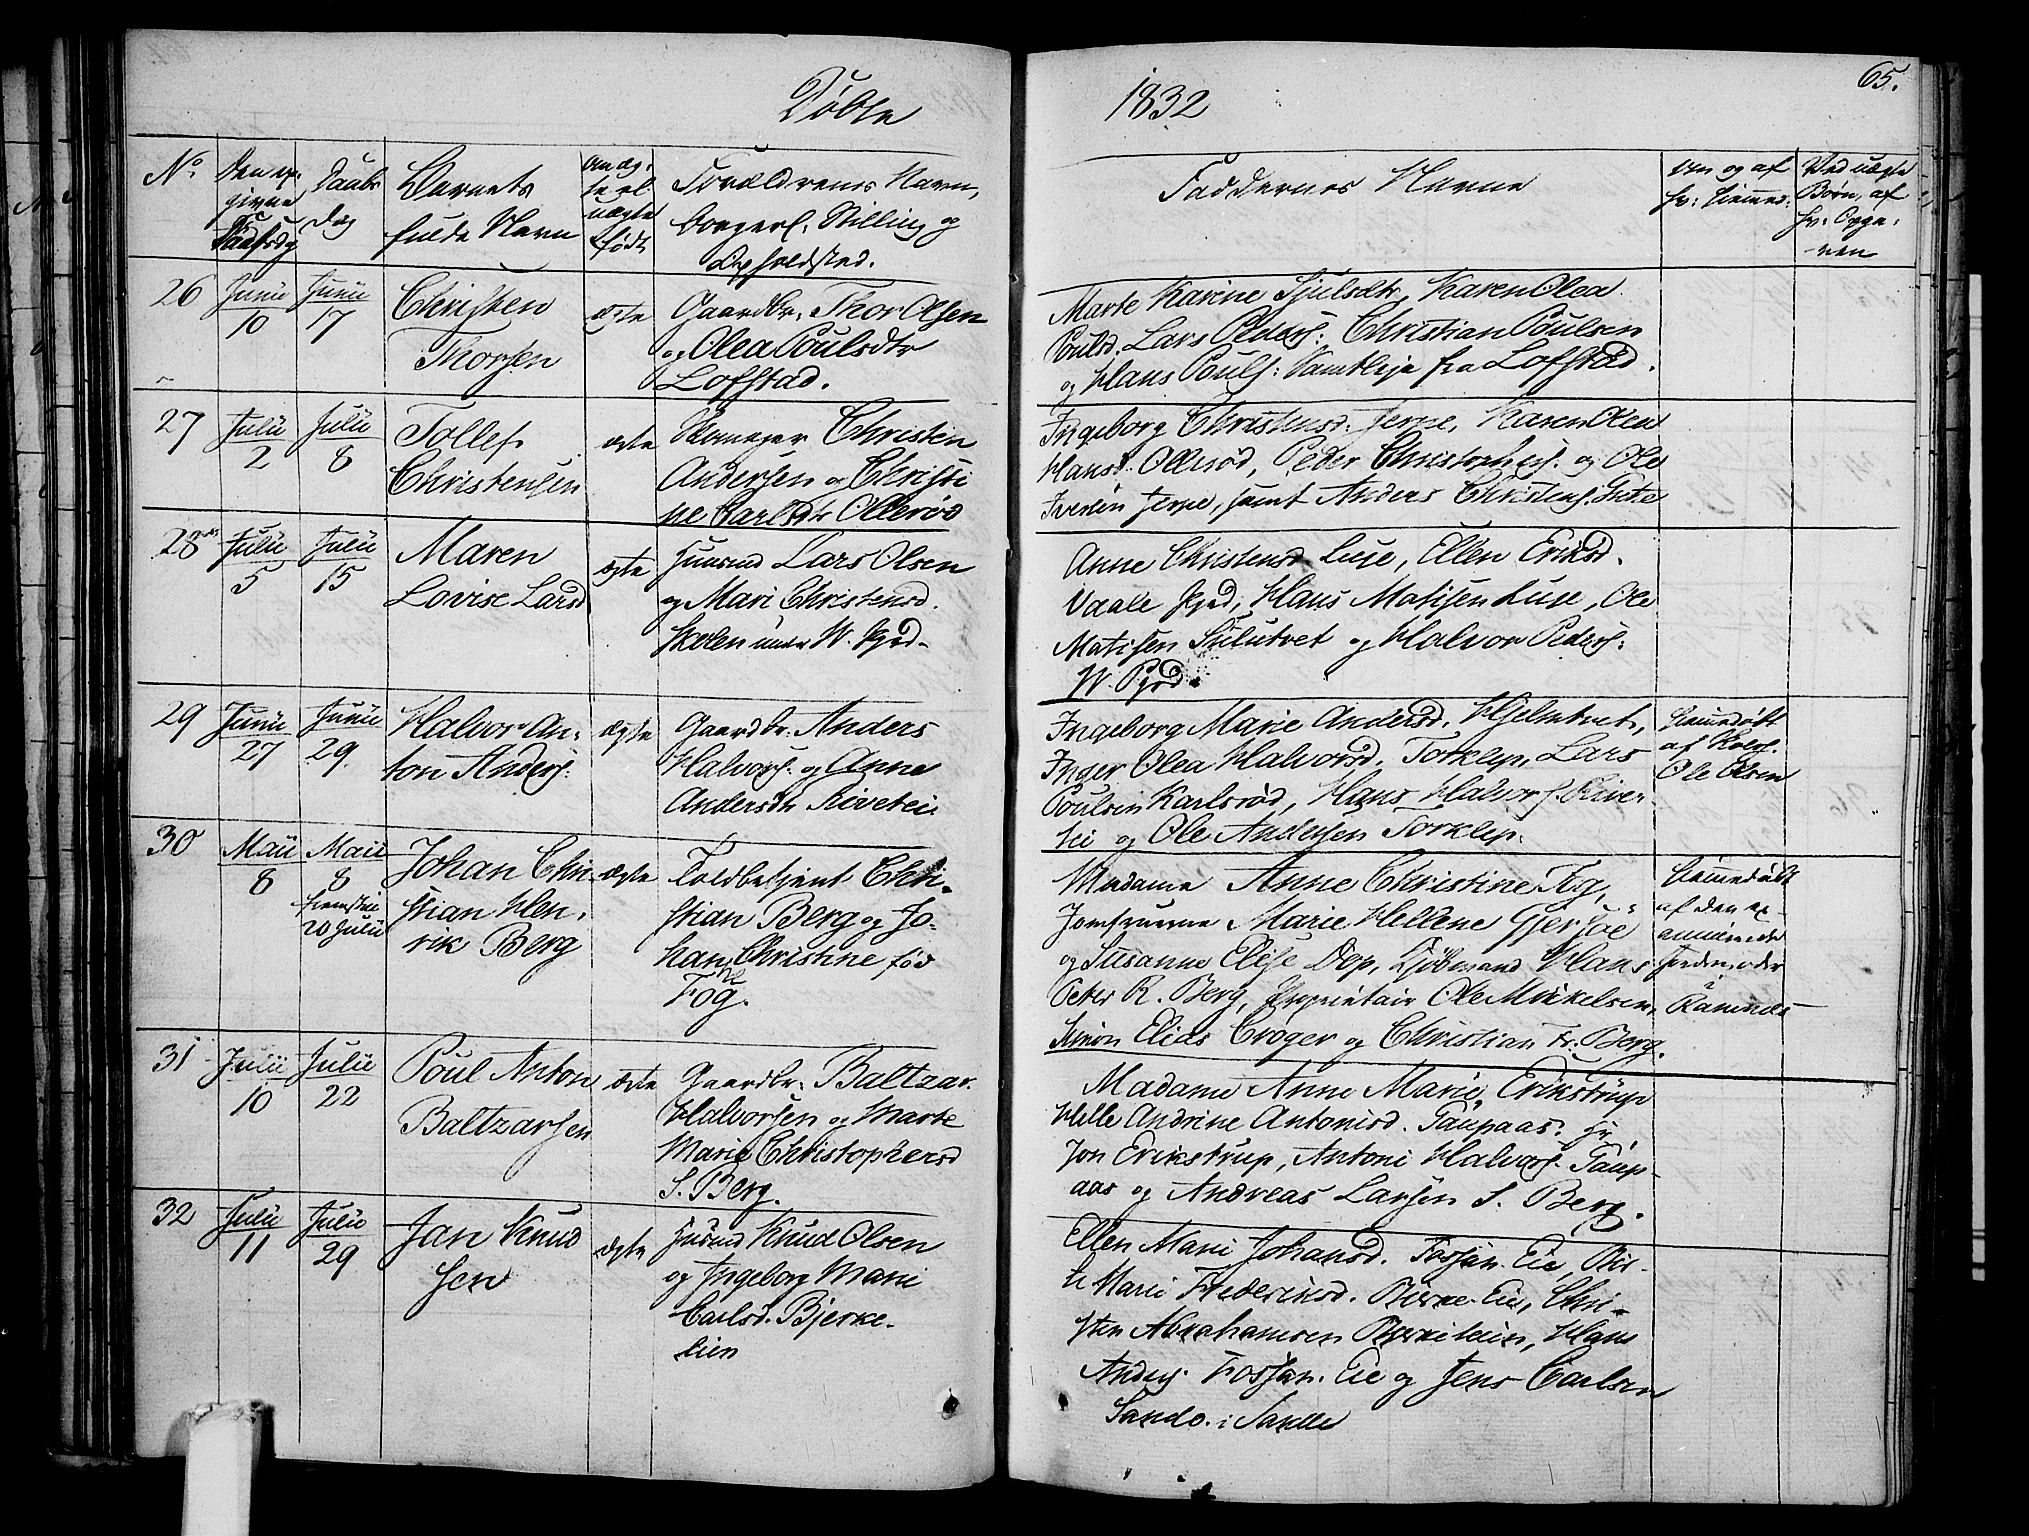 Døbte
1832
65.
No
Den op
givne
Daab
Dag
Barnets
fulde Navn
om æg-
te el.
uægte
født
Forældrenes Navn,
borgerl. Stilling og
Opholdsted.
Faddernes Navne
om og af
hv: hiemme
Ved uægte
Børn, af
hv: Opga-
ven
26
Junii
10
Junii
17
Christen
Thorsen
ægte
Gaardbr. Thor Olsen
og Olea Poulsdtr
Lofstad.
Marte Karine Sjulsdtr, Karen Olea
Poulsd. Lars Peders: Christian Poulsen
og Hans Pouls: Samtlige fra Lofstad.
27
Julii
2
Julii
8
Tollef
Christensen
ægte
Christen
Andersen og Christi
ne Carlsdtr Ollerød
Ingeborg Christensd. Jerpe, Karen Olea
Hansd. Ollerød, Peder Christophers. og Ole
Iversen Jerpe, samt Anders Christens.
28
Julii
5
Julii
15
Maren
Lovise Larsd
ægte
Huusmd Lars Olsen
og Mari Christensd.
under W.
Anne Christensd Luse, Ellen Eriksd.
Vaale Hans Matisen Luse, Ole
Matisen og Halvor Peders:
W.
29
Junii
27
Junii
29.
Halvor An-
ton Anders:
ægte
Gaardbr. Anders
Halvors: og Anne
Andersdtr
Ingeborg Marie Andersd. Hjelmtvet,
Inger Olea Halvorsd. Torklep, Lars
Poulsen Karlsrød, Hans Halvors.
og Ole Andersen Torklep.
hiemmedøbt
af
Ole Olsen
30
Maii
8
Maii
8
fremstil
20 Julii
Johan Chri-
stian Hen-
rik Berg
ægte
Toldbetjent Chri-
stian Berg og Jo-
hanne Christine, fød
Fog.
Madame Anne Christine Fog,
Jomfruerne Marie Hellene Gjersøe
og Susanne Elise Dop, Kjøbmand Hans
Peter K. Berg, Proprietair Ole Mikkelsen,
Simon Elias Crøger og Christian Fr. Berg.
hiemmedøbt
af den ex-
aminerede
Jordemoder
31
Julii
10
Julii
22
Poul Anton
Baltzarsen
ægte
Gaardbr. Baltzar
Halvorsen og Marte
Marie Christophersd
S. Berg.
Madame Anne Marie Erikstrup
Helle Andrine Antonisd. Paupaas. Hr
Jon Erikstrup, Antoni Halvors. Paup-
aas og Andreas Larsen S. Berg.
32
Julii
11
Julii
29
Jan Knud
sen
ægte
Husmd Knud Olsen
og Ingeborg Marie
Carlsd. Bjerke-
eien
Ellen Marie Johansd. Fossan Eie, Bir-
te Marie Frederiksd. Bjerke Eie, Chri-
sten Abrahamsen Hans
Anders. Fossan Eie og Jens Carlsen
Sande. i Sande